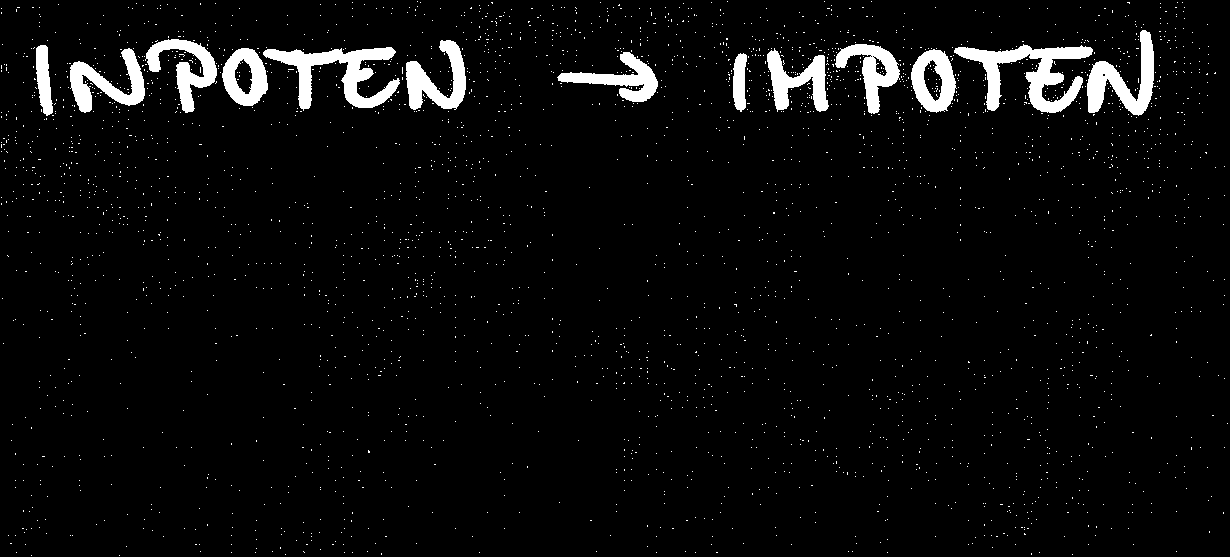 INPOTEN → IMPOTEN